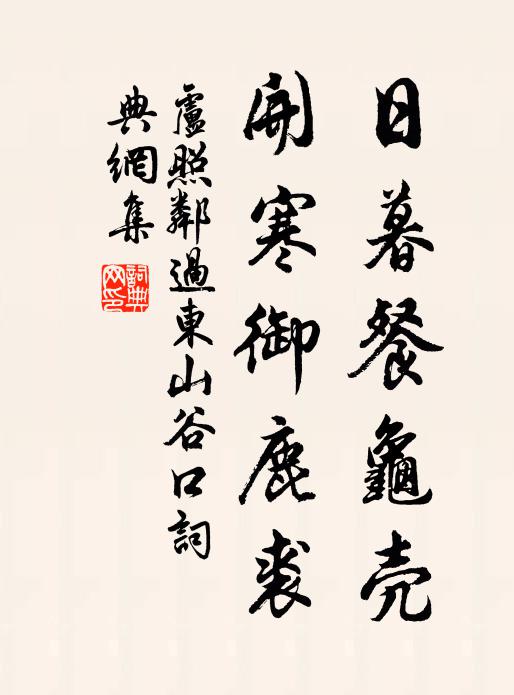 日暮餐龜壳
開寒御鹿裘
盧照鄰過東山谷口詞
典網集
詞典
网印